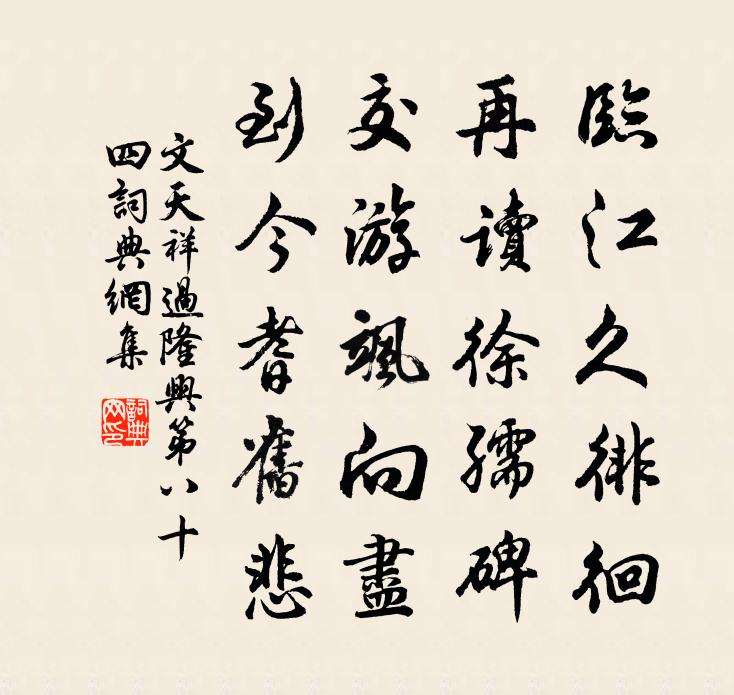 臨江久徘徊
再讀徐孺碑
交游颯向盡
到今耆舊悲
文天祥過隆興第八十
四詞典網集
詞典網印